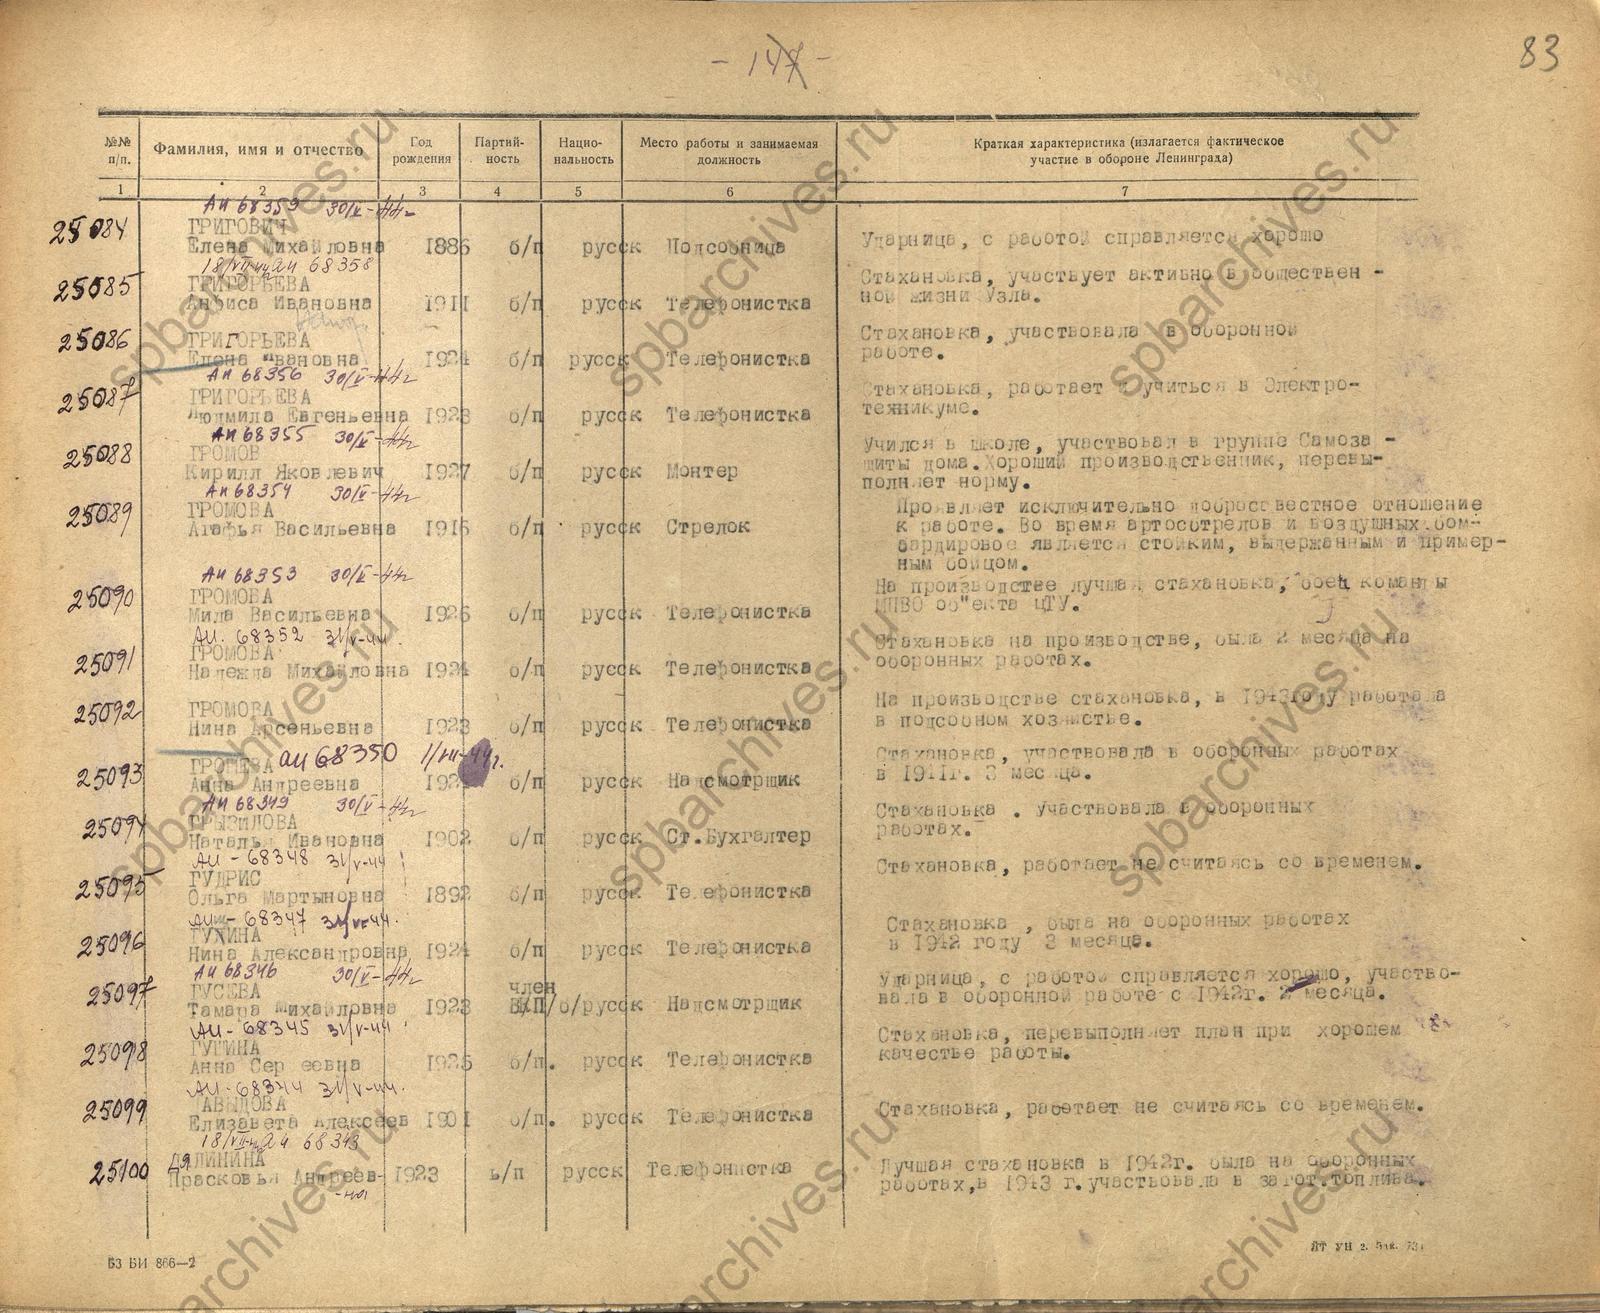 - 147 -
83
№№ п/п.
Фамилия, имя и отчество
Год рождения
Партий-ность
Нацио-нальность
Место работы и занимаемая должность
Краткая характеристика (излагается фактическое участие в обороне Ленинграда)
1 2 3 4 5 6 7
Ан 68359 30/V-44г
25084 ГРИГОВИЧ
Елена Михайловна 1886 б/п русск Подсобница Ударница, с работой справляется хорошо
18/VII-44 Ан 68358
25085 ГРИГОРЬЕВА Стахановка, участвует активно в обществен -
Анфиса Ивановна 1911 б/п русск Телефонистка ной жизни Узла.
25086 ГРИГОРЬЕВА Стахановка, участвовала в оборонной
Елена Ивановна 1924 б/п русск Телефонистка работе.
Ан 68356 30/V-44г
25087 ГРИГОРЬЕВА Стахановка, работает и учиться в Электро-
Людмила Евгеньевна 1923 б/п русск Телефонистка техникуме.
Ан 68355 30/V-44г
25088 ГРОМОВ Учился в школе, участвовал в группе Самоза -
Кирилл Яковлевич 1927 б/п русск Монтер щиты дома. Хороший производственник, перевы-
полняет норму.
Ан 68354 30/V-44г
25089 ГРОМОВА Проявляет исключительно добросовестное отношение
Агафья Васильевна 1915 б/п русск Стрелок к работе. Во время артобстрелов и воздушных бом-
бардировое является стойким, выдержанным и пример-
ным бойцом.
Ан 68353 30/V-44г
25090 ГРОМОВА На производстве лучшая стахановка, боец команды
Мила Васильевна 1926 б/п русск Телефонистка МПВО об"екта ЦТУ.
Ан. 68352 31/V-44.
25091 ГРОМОВА Стахановка на производстве, была 2 месяца на
Надежда Михайловна 1924 б/п русск Телефонистка оборонных работах.
25092 ГРОМОВА На производстве стахановка, в 1943году работала
Нина Арсеньевна 1923 б/п русск Телефонистка в подсобном хозяйстве.
Ан 68350 1/VII-44г.
25093 Стахановка, участвовала в оборонных работах
Анна Андреевна б/п русск Надсмотрщик в 1941г. 3 месяца.
Ан 68349 30/V-44г
25094 ГРЫЗИЛОВА Стахановка . Участвовала в оборонных
Наталья Ивановна 1902 б/п русск Ст.Бухгалтер работах.
Ан - 68348 31/V-44
25095 ГУДРИС Стахановка, работает не считаясь со временем.
Ольга Мартыновна 1892 б/п русск Телефонистка
Ан - 68347 31/V-44.
25096 Стахановка , была на оборонных работах
Нина Александровна 1924 б/п русск Телефонистка в 1942 году 3 месяца.
Ан 68346 30/V-44г
25097 ГУСЕВА член Ударница, с работой справляется хорошо, участво-
Тамара Михайловна 1923 ВКП/б/русск Надсмотрщик вала в оборонной работе с 1942г. 2 месяца.
Ан - 68345 31/V-44
25098 Стахановка, перевыполняет план при хорошем
Анна Сергеевна б/п. русск Телефонистка качестве работы.
Ан - 68344 31/V-44.
25099 ДАВЫДОВА Стахановка, работает не считаясь со временем.
Елизавета Алексеев 1901 б/п. русск Телефонистка
18/VII-44 Ан 68343
25100 ДЯЛИНИНА Лучшая стахановка в 1942г. была на оборонных
Прасковья Андреев- 1923 б/п русск Телефонистка работах, в 1943 г. участвовала в загот.топлива.
-на
БЗ БИ 866—2
spbarchives.ru